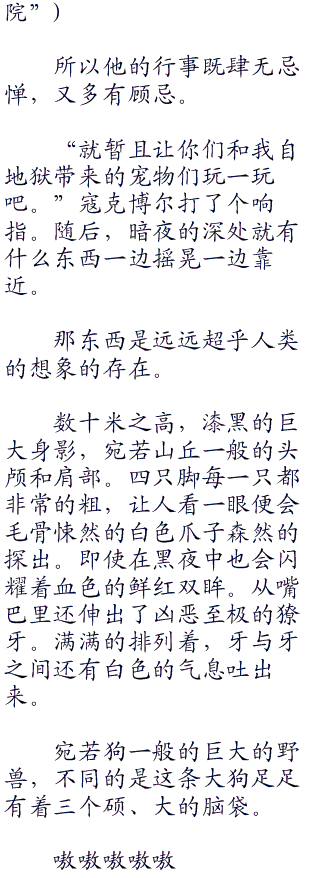 院”)
所以他的行事既肆无忌
惮，又多有顾忌。
“就暂且让你们和我自
地狱带来的宠物们玩一玩
吧。”寇克博尔打了个响
指。随后，暗夜的深处就有
什么东西一边摇晃一边靠
近。
那东西是远远超乎人类
的想象的存在。
数十米之高，漆黑的巨
大身影，宛若山丘一般的头
颅和肩部。四只脚每一只都
非常的粗，让人看一眼便会
毛骨悚然的白色爪子森然的
探出。即使在黑夜中也会闪
耀着血色的鲜红双眸。从嘴
巴里还伸出了凶恶至极的獠
牙。满满的排列着，牙与牙
之间还有白色的气息吐出
来。
宛若狗一般的巨大的野
兽，不同的是这条大狗足足
有着三个硕、大的脑袋。
嗷嗷嗷嗷嗷